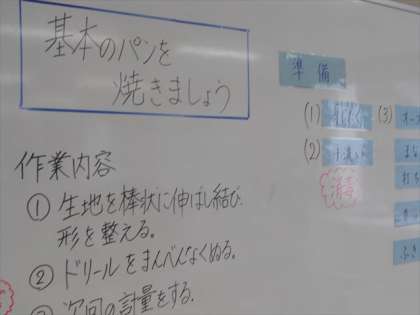 基本のパンを
焼きましょう
準備
(1)
(2) 手洗い
(3)
消毒
作業内容
① 生地を棒状に伸ばし結び
形を整える。
② ドリールをまんべんなくぬる。
③ 次回の計量をする。